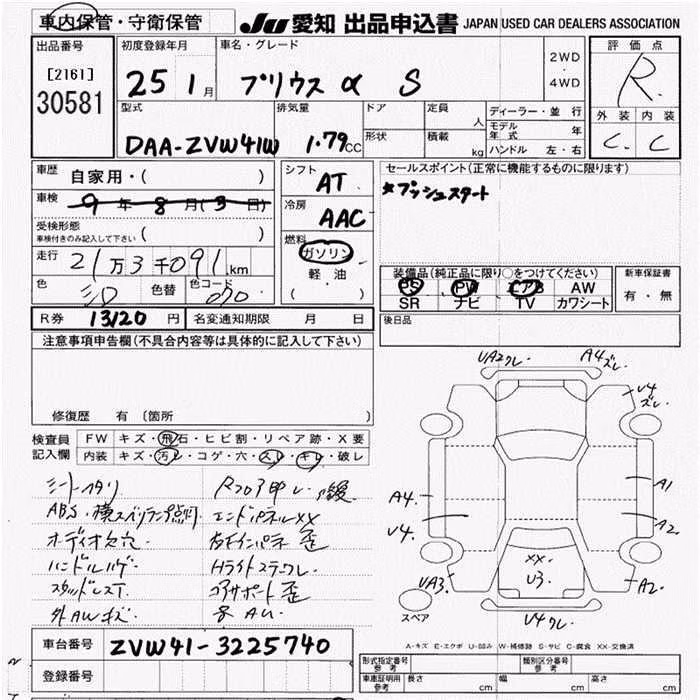 車内保管・守衛保管
JU 愛知 出品申込書 JAPAN USED CAR DEALERS ASSOCIATION
出品番号
[2161]
30581
初度登録年月
25 1月
車名・グレード
プリウス α S
2WD
・
4WD
評価点
R
外装 内装
C C
型式
DAA-ZVW41W
排気量
1.79CC
ドア
形状
定員 人
積載 kg
ディーラー・並行
モデル年式 年
ハンドル 左・右
車歴 自家用・( )
車検 9年8月(3日)
受検形態
車検付きのみ記入して下さい ( )
走行 21万3千091km
色 シロ 色替 色コード 070
シフト AT
冷房 AAC
燃料
ガソリン
軽油
( )
セールスポイント(正常に機能するものに限ります)
★プッシュスタート
装備品(純正品に限り○をつけてください)
PS PW エアB AW
SR ナビ TV カワシート
新車保証書
有・無
R券 13120円 名変通知期限 月 日
後日品
注意事項申告欄(不具合内容等は具体的に記入して下さい)
修復歴 有 〔箇所 〕
検査員記入欄
FW キズ・飛石・ヒビ割・リペア跡・X要
内装 キズ・汚レ・コゲ・穴・スレ・キレ・破レ
シートヘタリ
ABS・横スベリランプ点灯
オーディオ欠穴
ハンドルハゲ
スタッドレスT
外AWキズ
Rフロア押し 修復
エンドパネルXX
左右インパネ 歪
Hライトステークレ
コアサポート 歪
UA2クレ A4ズレ
V4ズレ
A1
A2
A2
A4
V4
UA3
XX
U3
V4クレ
スペア
A-キズ E-エクボ U-凹み W-補修跡 S-サビ C-腐食 XX-交換済
車台番号 ZVW41-3225740
登録番号
形式指定番号 参考 類別区分番号 参考
車庫証明用 参考 長さ cm 幅 cm 高さ cm